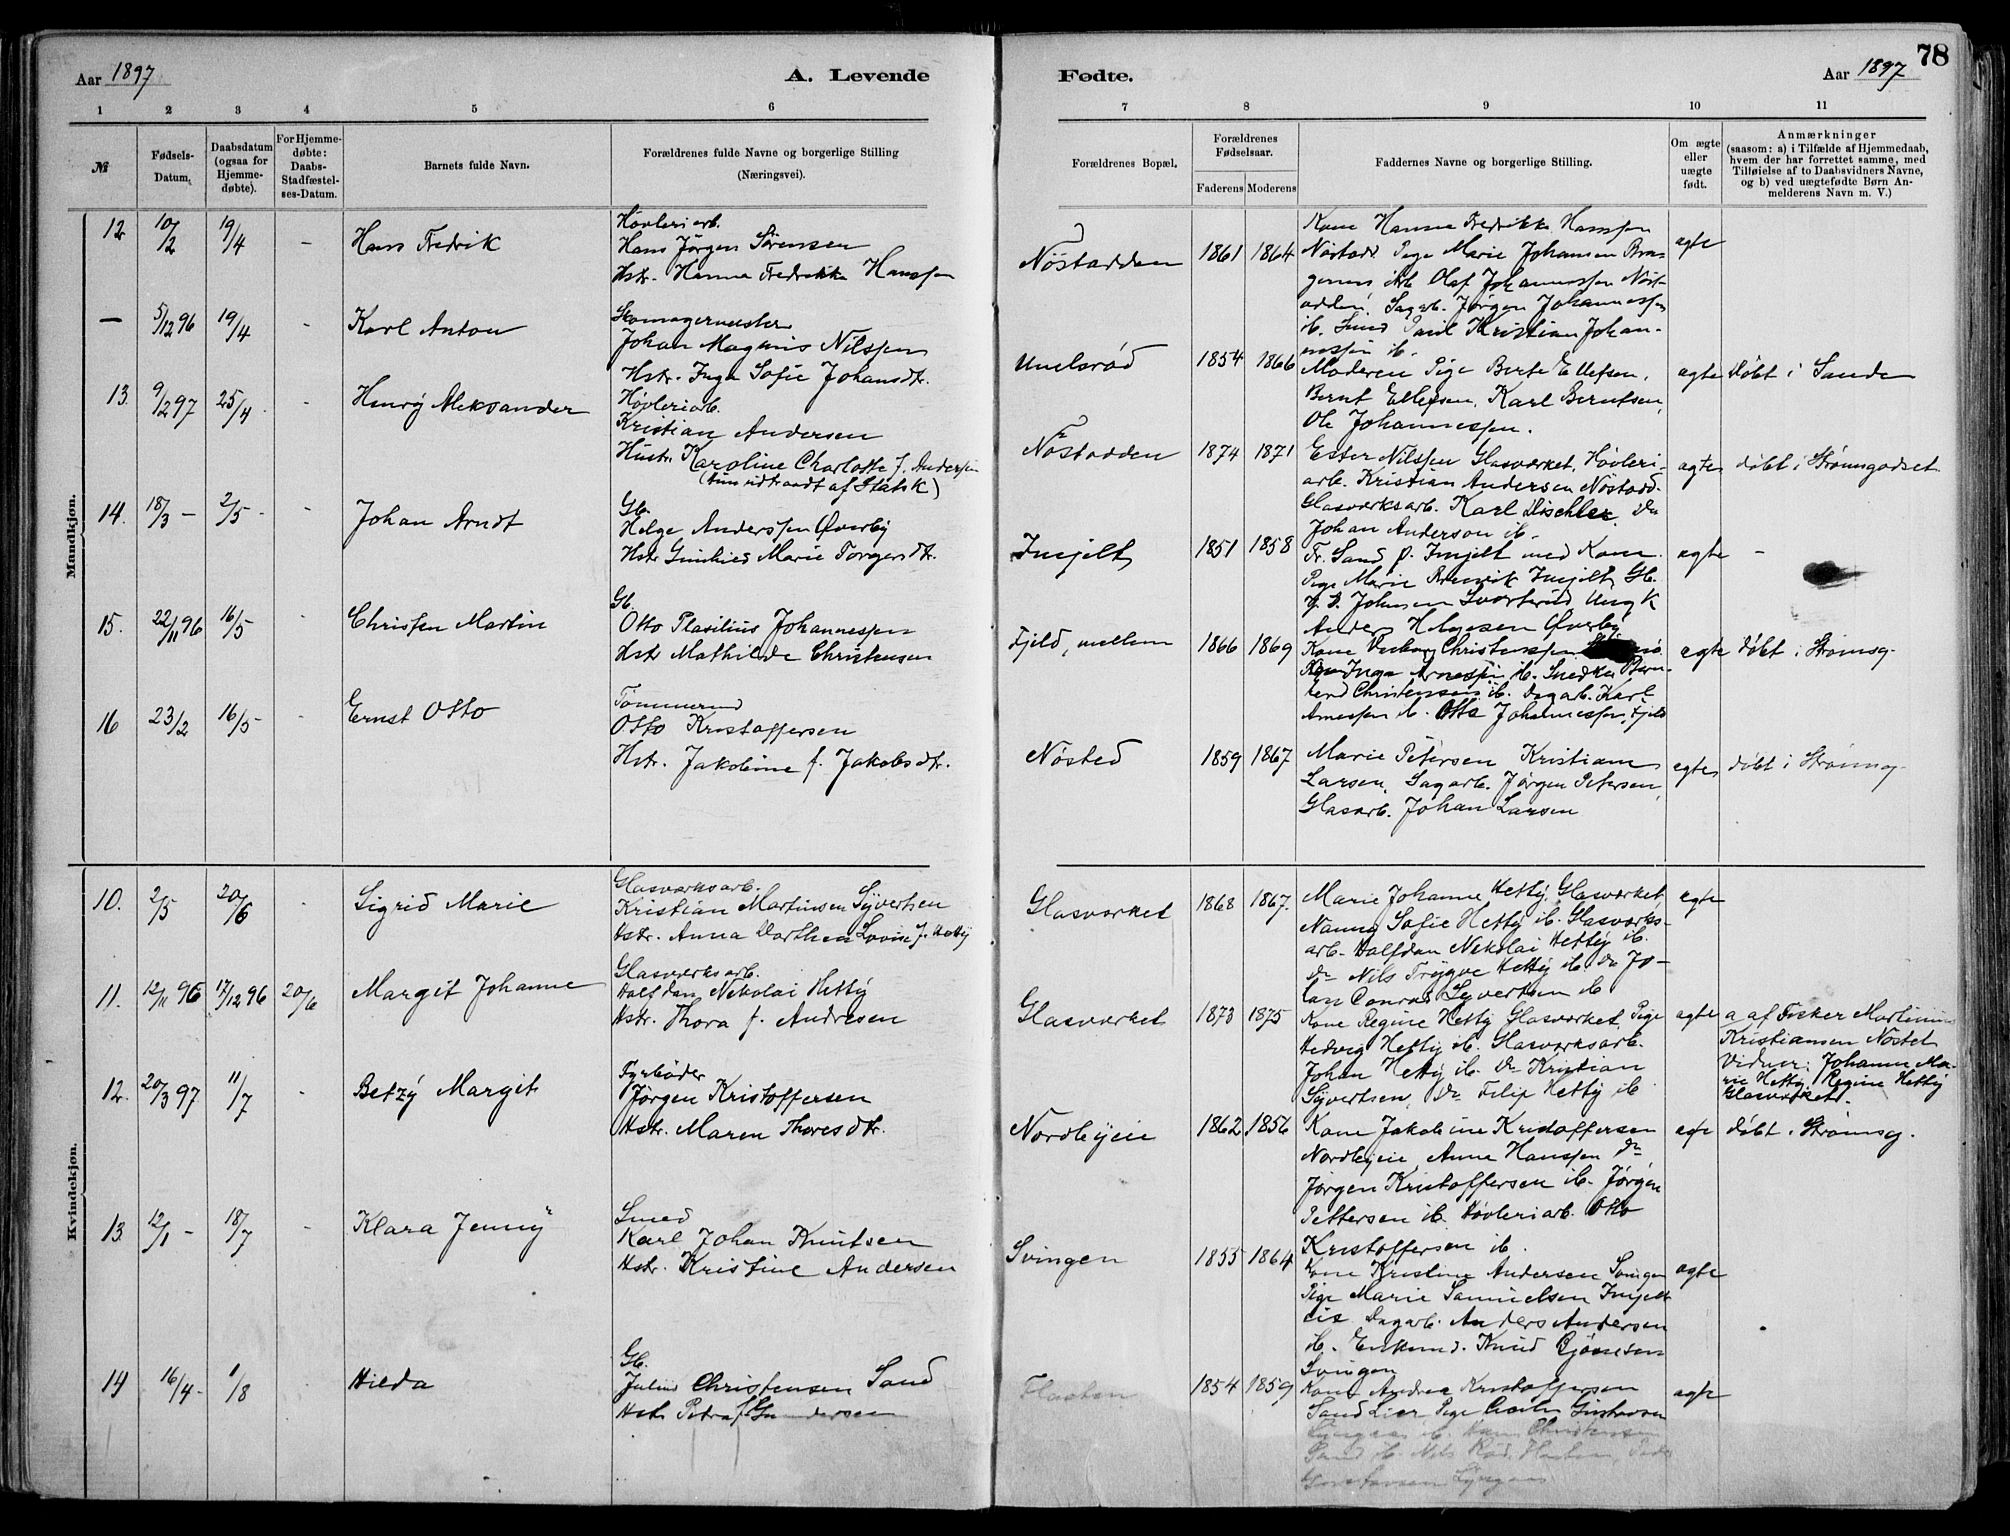 78
Aar 1897
A. Levende
Fødte.
Aar 1897
1 2 3 4 5 6 7 8 9 10 11
№
Fødsels-
Datum.
Daabsdatum
(ogsaa for
Hjemme-
døbte).
For Hjemme-
døbte:
Daabs-
Stadfæstel-
ses-Datum.
Barnets fulde Navn.
Forældrenes fulde Navne og borgerlige Stilling
(Næringsvei).
Forældrenes Bopæl.
Forældrenes
Fødselsaar.
Faderens Moderens
Faddernes Navne og borgerlige Stilling.
Om ægte
eller
uægte
født.
Anmærkninger
(saasom: a) i Tilfælde af Hjemmedaab,
hvem der har forrettet samme, med
Tilføielse af to Daabsvidners Navne,
og b) ved uægtefødte Børn An-
melderens Navn m. V.)
Mandkjøn.
12 10/2 19/4 - Hans Fredrik
Høvleriarb.
Hans Jørgen Sørensen
Hstr. Hanna Fredrikke Hanssen
Nøstodden 1861 1864
Kone Hanna Fredrikke Hanssen
Nøstodd. Pige Marie Johansen Bra-
gernes Arb. Olaf Johannessen Nøst-
odden. Sagarb. Jørgen Johannessen
ib. Paul Kristian Johan-
nessen ib.
ægte
— 5/12 96 19/4 - Karl Anton
Skomagermester
Johan Magnus Nilssen
Hstr. Inga Sofie Johansdtr.
1854 1866
Moderen Pige Berte Ellefsen,
Bernt Ellefsen, Karl Berntsen,
Ole Johannessen.
ægte Døbt i Sande
13. 9/2 97 25/4 - Henry Aleksander
Høvleriarb.
Kristian Andersen
Hustr. Karoline Charlotte f. Anderssen
(hun udtraadt af Statsk)
Nøstodden 1874 1871
Esser Nilssen Glasværket, Høvleri-
arb. Kristian Andersen Nøstodd.
Glasværksarb. Karl Dischler, Do
Johan Anderson ib.
ægte døbt i Strømsgodset
14. 18/3 - 2/5 - - Johan Arndt
Gb.
Helge Anderssen Øverby
Hstr. Marie Torgersdtr.
Injelt 1851 1858
Fr. Sand p. Injelt med Kone.
Pige Marie Injelt, Gb.
Johnsen Ungk
Anders Helgesen Øverby
ægte -
15. 22/11 96 16/5 - Christen Martin
Gb.
Otto Johannessen
Hstr Mathilde Christensen
Fjeld, mellem 1866 1869
Kone Christensen
Inga Arnessen ib. Snedker Bern-
Christensen ib. Dagarb. Karl
Arnessen ib. Otto Johannessen, Fjeld
ægte døbt i Strømsg.
16 23/2 16/5 - Ernst Otto
Tømmermd
Otto Kristoffersen
Hstr. Jakobine f. Jakobsdtr.
Nøsted 1859 1867
Marie Petersen Kristian
Larsen, Sagarb. Jørgen Petersen,
Glasarb. Johan Larsen
ægte døbt i Strømsg.
Kvindekjøn.
10. 2/5 20/6 - Sigrid Marie
Glasværksarb.
Kristian Martinsen Syvertsen
Hstr. Anna Dorthea Lovise f. Hetty
Glasværket 1868 1867.
Marie Johanne Hetty, Glasværket,
Nanny Sofie Hetty ib. Glasværks-
arb. Halfdan Nikolai Hetty ib.
Do Nils Trygve Hetty ib. Do Jo-
han Conrad Syvertsen ib
ægte
11. 12/11 96 17/12 96 20/6 Margit Johanne
Glasværksarb.
Halfdan Nikolai Hetty
Hstr. Thora f. Andresen
Glasværket 1873 1875
Kone Regine Hetty Glasværket, Pige
Hedvig Hetty ib. Glasværksarb.
Johan Hetty ib. Do Kristian
Syvertsen, Do Filip Hetty ib
ægte a af Fisker Martinius
Kristiansen Nøstet
Vidner: Johanne Ma-
rie Hetty, Regine Hetty
Glasværket.
12. 20/3 97 11/7 - Betzy Margit
Fyrbøder
Jørgen Kristoffersen
Hstr. Maren Thoresdtr.
Nordbyeie 1862 1856
Kone Jakobine Kristoffersen
Nordbyeie Anne Hanssen Do
Jørgen Kristoffersen ib. Jørgen
Pettersen ib. Høvleriarb. Otto
Kristoffersen ib.
ægte døbt i Strømsg.
13 12/1 - 18/7 - Klara Jenny
Smed
Karl Johan Knutsen
Hstr. Kristine Andersen
Svingen 1855 1864
Kone Kristine Andersen Svingen
Pige Marie Samuelsen Injelt
eie Dagarb. Anders Andersen
ib. Enkemd. Knud Bjørnesen
Svingen
ægte
14 16/4 - 1/8 Hilda
Gb.
Julius Christensen Sand
Hstr. Petra f. Gundersen
1854 1859
Kone Andrea Kristoffersen
Sand Lier Pige Gustavsen
ib. Hans Christensen
Sand ib. Nils
ægte